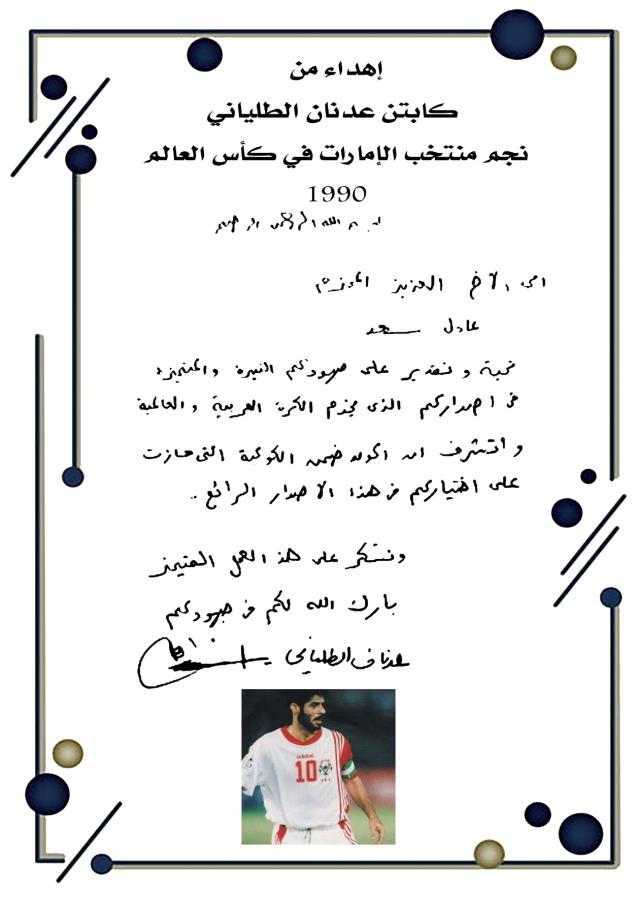 إهداء من
كابتن عدنان الطلياني
نجم منتخب الإمارات في كأس العالم
1990
بسم الله الرحمن الرحيم
الأخ العزيز المحترم
عادل سعد
تحية وتقدير على جهودكم النيرة والمتميزة
في اصداركم الذي يخدم الكرة العربية والعالمية
واتشرف ان اكون ضمن الكوكبة التي حازت
على اختياركم في هذا الاصدار الرائع ..
ونشكر على هذا العمل المتميز
بارك الله لكم في جهودكم
عدنان الطلياني
adidas
10